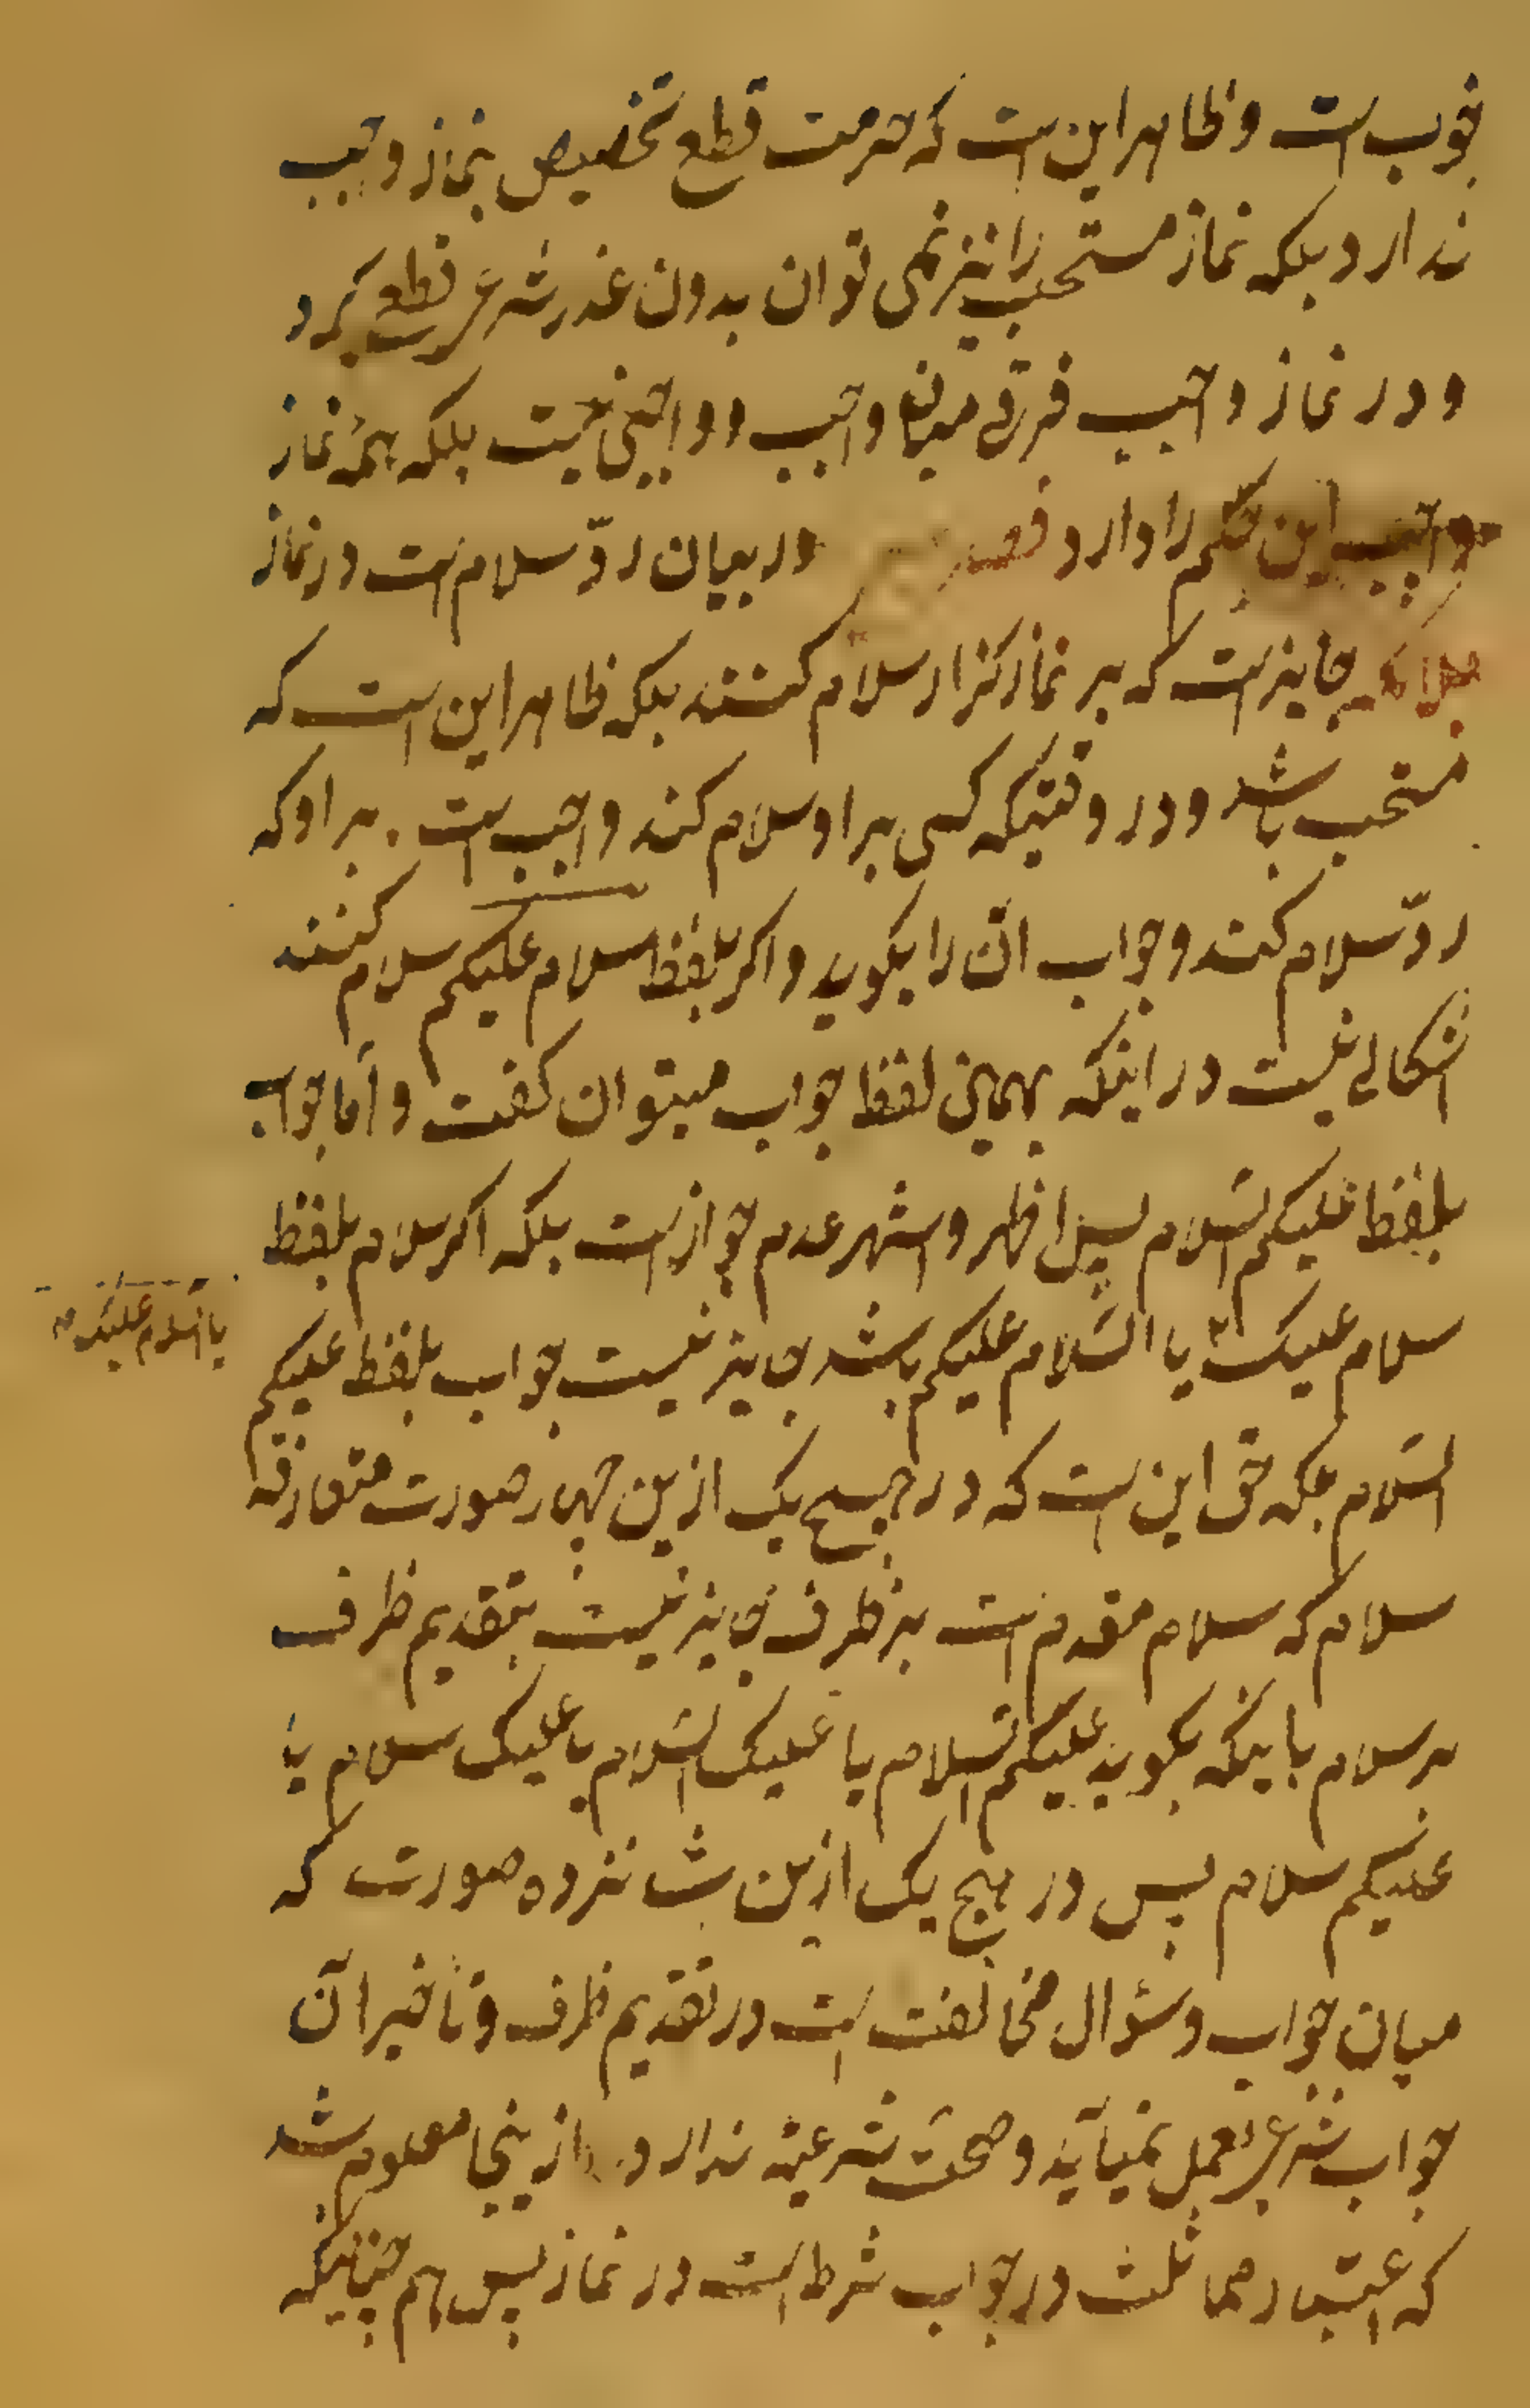 خوب است و ظاهر این است که حرمت قطع تخصیص بنماز واجب
ندارد بلکه نماز مستحب را نیز نمی توان بدون عذر شرعی قطع کرد
و در نماز واجب فرقی میان واجب و واجبی نیست بلکه همه نماز
واجب این حکم را دارد فصل در بیان ردّ سلام است در نماز
بدانکه جایز است که بر نماز کزار سلام کنند بلکه ظاهر این است که
مستحب باشد و در وقتیکه کسی بر او سلام کند واجب است بر او که
ردّ سلام کند و جواب انرا بکوید و اکر بلفظ سلام علیکم سلام کنند
اشکالی نیست در اینکه بهمین لفظ جواب میتوان کفت و اما جواب
بلفظ علیکم السّلام پس اظهر و اشهر عدم جواز است بلکه اکر سلام بلفظ
سلام علیک یا السّلام علیکم باشد جایز نیست جواب بلفظ علیکم
یا السّلام علیک
السّلام بلکه حق این است که در هیچ یک ازین چهار صورت متعارفه
سلام که سلام مقدم است بر ظرف جایز نیست بتقدیم ظرف
بر سلام باینکه بکوید علیکم السّلام یا علیک السّلام یا علیک سلام یا
علیکم سلام پس در هیچ یک ازین شانزده صورت که
میان جواب و سؤال مخالفت است در تقدیم ظرف و تأخیر آن
جواب شرعی بعمل نمیآید و صحت شرعیّه ندارد و ازینجا معلوم شد
که اعتبار مماثلت در جواب شرط است در نماز پس هم چنانیکه